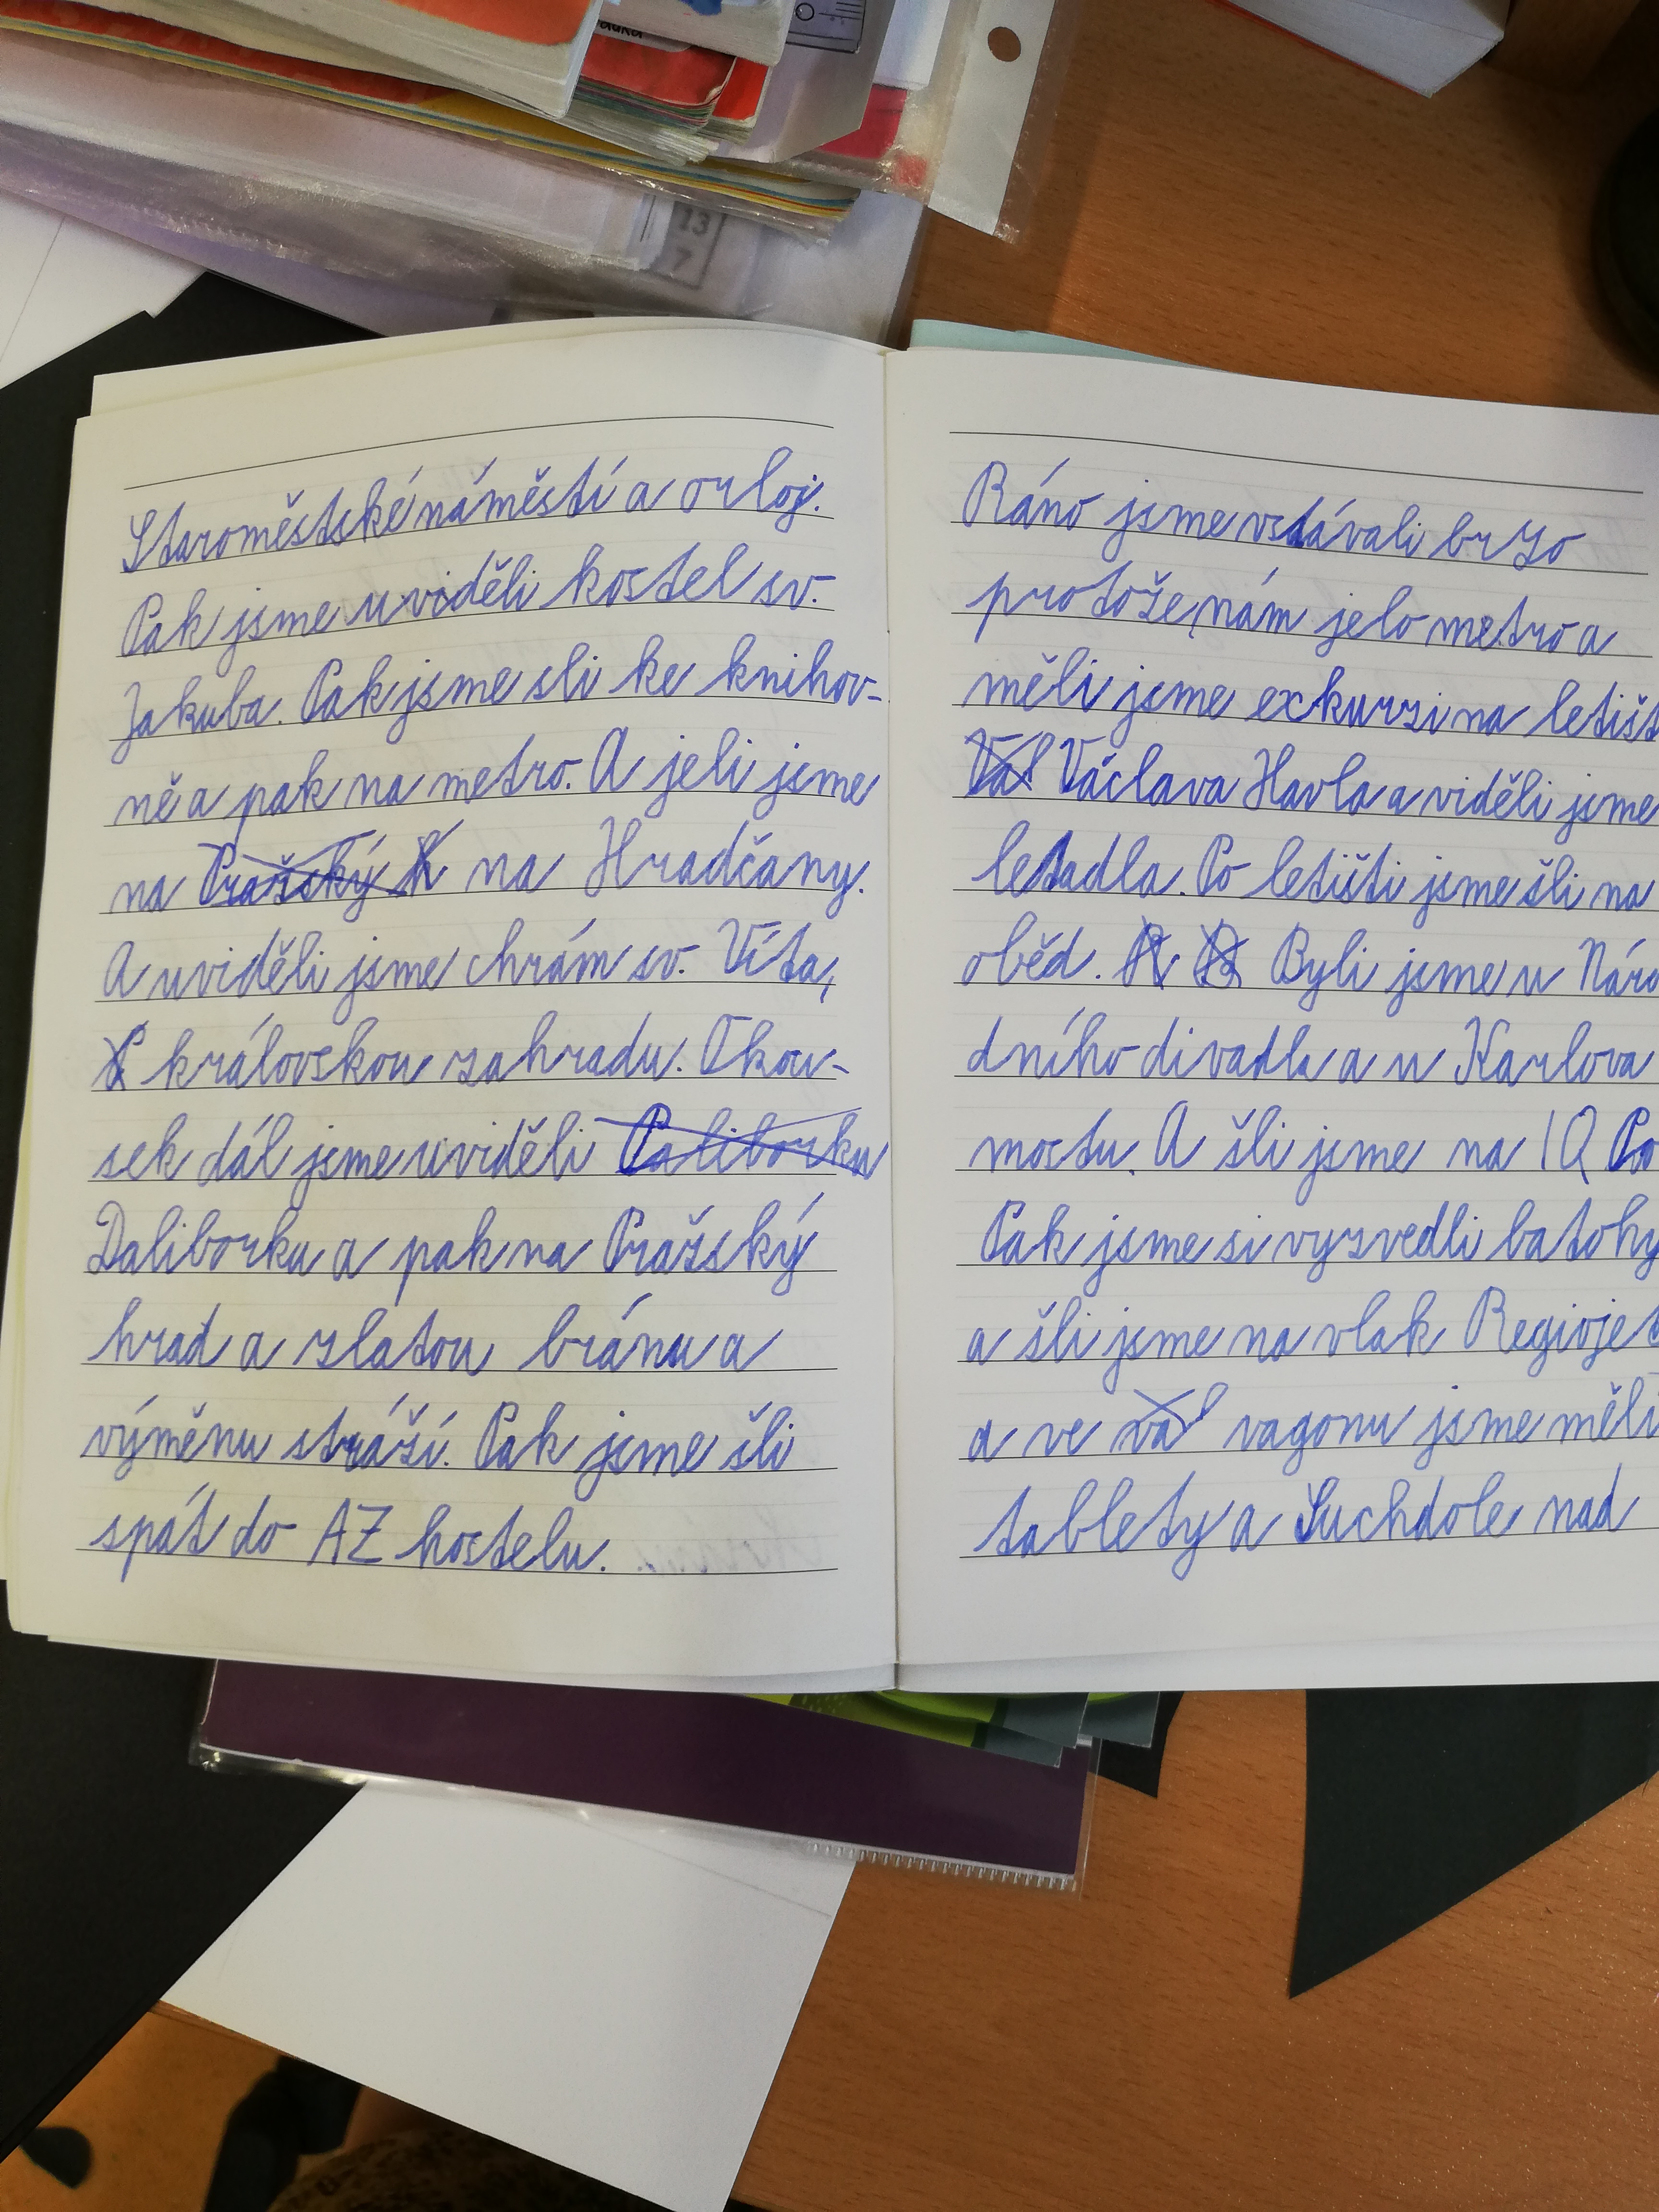 13
7
Staroměstské náměstí a orloj.
Pak jsme uviděli kostel sv.
Jakuba. Pak jsme sli ke knihov-
ně a pak na metro. A jeli jsme
na Pražský h na Hradčany.
A uviděli jsme chrám sv. Víta,
královskou zahradu. O kou-
sek dál jsme uviděli Paliborku
Daliborku a pak na Pražský
hrad a zlatou bránu a
výměnu stráží. Pak jsme šli
spát do AZ hostelu.
Ráno jsme vstávali brzo
protože nám jelo metro a
měli jsme exkurzi na letišt
Vál Václava Havla a viděli jsme
letadla. Po letišti jsme šli na
oběd. Byli jsme u Náro
dního divadla a u Karlova
mostu. A šli jsme na IQ Po
Pak jsme si vyzvedli batohy
a šli jsme na vlak Regiojet
a ve val vagonu jsme měli
tablety a Suchdole nad